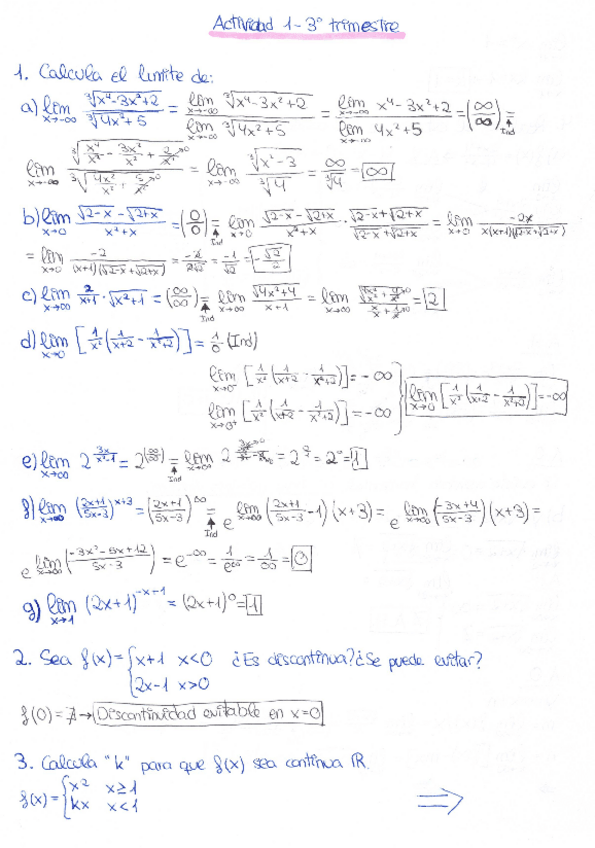 Actividad 1 - 3º trimestre
1. Calcula el límite de:
a) lim x→-∞ ∛(x⁴-3x²+2) / ∛(4x²+5) = lim x→-∞ ∛(x⁴-3x²+2) / lim x→-∞ ∛(4x²+5) = lim x→-∞ x⁴-3x²+2 / lim x→-∞ 4x²+5 = (∞/∞) = Ind
lim x→-∞ = lim x→-∞ ∛(x²-3) / ∛4 = ∞/∛4 = ∞
b) lim x→0 (√(2-x) - √(2+x)) / (x²+x) = (0/0) = Ind lim x→0 (√(2-x) - √(2+x)) / (x²+x) · (√(2-x) + √(2+x)) / (√(2-x) + √(2+x)) = lim x→0 -2x / (x(x+1)(√(2-x)+√(2+x)))
= lim x→0 -2 / ((x+1)(√(2-x)+√(2+x))) = -2/2√2 = -1/√2 = -√2/2
c) lim x→∞ 2/(x+1) · √(x²+1) = (∞/∞) = Ind lim x→∞ √(4x²+4) / (x+1) = lim x→∞ = 2
d) lim x→0 [1/x² (1/(x+2) - 1/(x²+2))] = 1/0 (Ind)
lim x→0⁻ [1/x² (1/(x+2) - 1/(x²+2))] = -∞
lim x→0⁺ [1/x² (1/(x+2) - 1/(x²+2))] = -∞
lim x→0 [1/x² (1/(x+2) - 1/(x²+2))] = -∞
e) lim x→∞ 2^(3x/(x²-1)) = 2^(∞/∞) = Ind lim x→∞ = 2⁰ = 1
f) lim x→∞ ((2x+1)/(5x-3))^(x+3) = ((2x+1)/(5x-3))^∞ = Ind e lim x→∞ ((2x+1)/(5x-3) - 1)(x+3) = e lim x→∞ ((-3x+4)/(5x-3))(x+3) =
e lim x→∞ ((-3x²-5x+12)/(5x-3)) = e^-∞ = 1/e^∞ = 1/∞ = 0
g) lim x→1 (2x+1)^(-x+1) = (2x+1)⁰ = 1
2. Sea f(x) = { x+1 x<0 ¿Es discontinua? ¿Se puede evitar?
2x-1 x>0
f(0) = ∄ → Discontinuidad evitable en x=0
3. Calcula "k" para que f(x) sea continua ℝ.
f(x) = { x² x≥1
kx x<1
⇒